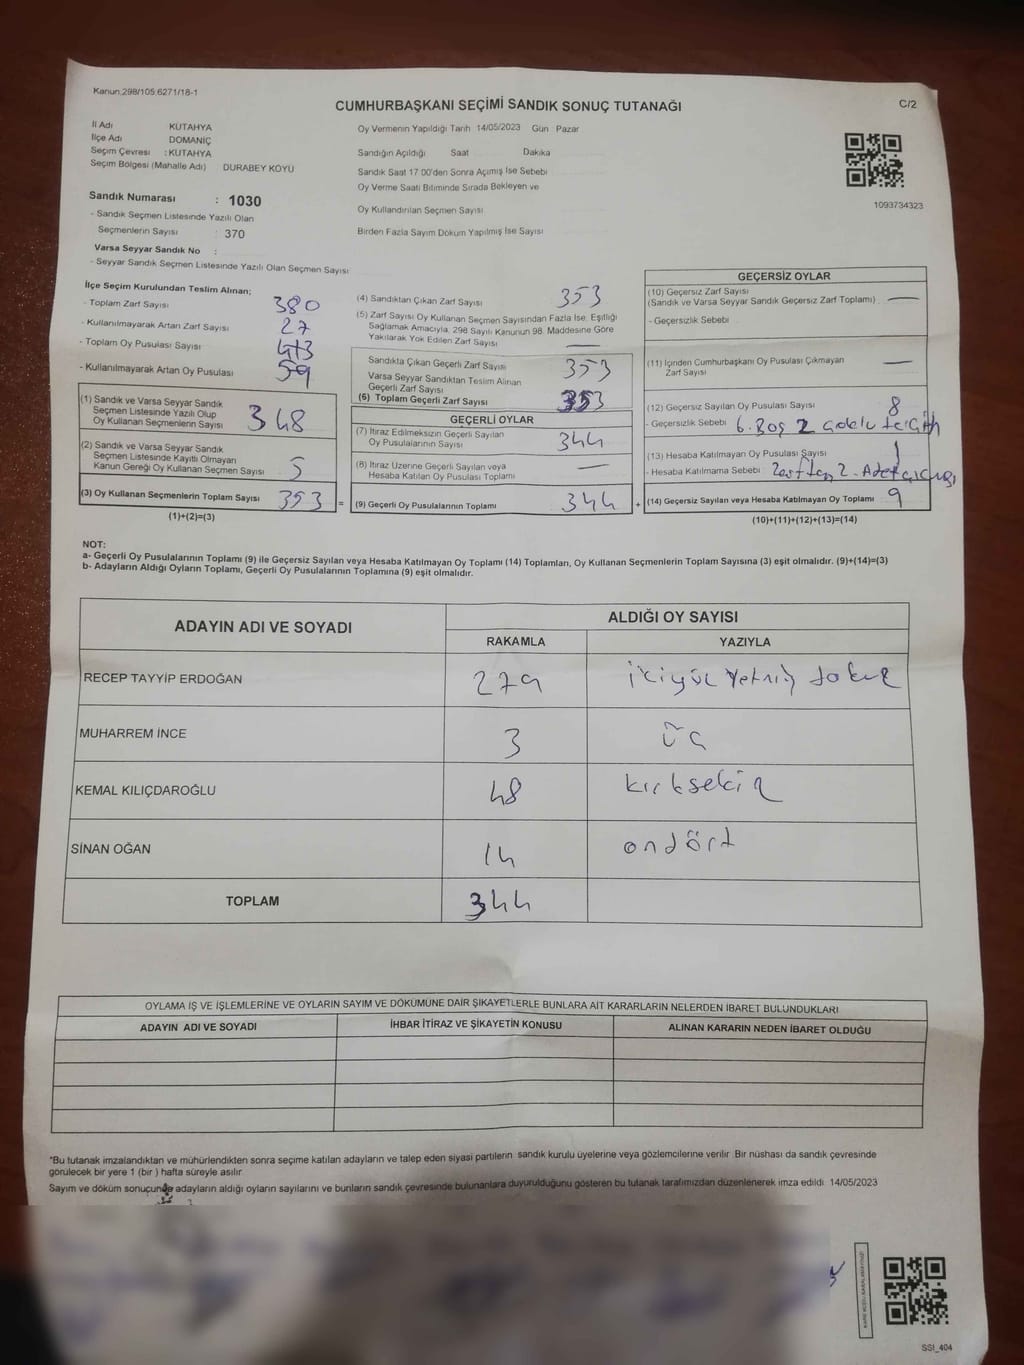 Kanun.298/105.6271/18-1
CUMHURBAŞKANI SEÇİMİ SANDIK SONUÇ TUTANAĞI
C/2
İl Adı KÜTAHYA
İlçe Adı DOMANİÇ
Seçim Çevresi : KÜTAHYA
Seçim Bölgesi (Mahalle Adı) DURABEY KÖYÜ
Sandık Numarası : 1030
- Sandık Seçmen Listesinde Yazılı Olan
Seçmenlerin Sayısı : 370
Varsa Seyyar Sandık No :
- Seyyar Sandık Seçmen Listesinde Yazılı Olan Seçmen Sayısı
Oy Vermenin Yapıldığı Tarih 14/05/2023 Gün Pazar
Sandığın Açıldığı Saat Dakika
Sandık Saat 17 00'den Sonra Açımış İse Sebebi
Oy Verme Saati Bitiminde Sırada Bekleyen ve
Oy Kullandırılan Seçmen Sayısı
Birden Fazla Sayım Döküm Yapılmış İse Sayısı
1093734323
İlçe Seçim Kurulundan Teslim Alınan;
- Toplam Zarf Sayısı 380
- Kullanılmayarak Artan Zarf Sayısı 27
- Toplam Oy Pusulası Sayısı 413
- Kullanılmayarak Artan Oy Pusulası 59
(1) Sandık ve Varsa Seyyar Sandık
Seçmen Listesinde Yazılı Olup
Oy Kullanan Seçmenlerin Sayısı 348
(2) Sandık ve Varsa Seyyar Sandık
Seçmen Listesinde Kayıtlı Olmayan
Kanun Gereği Oy Kullanan Seçmen Sayısı 5
(3) Oy Kullanan Seçmenlerin Toplam Sayısı 353 =
(1)+(2)=(3)
(4) Sandıktan Çıkan Zarf Sayısı 353
(5) Zarf Sayısı Oy Kullanan Seçmen Sayısından Fazla İse, Eşitliği
Sağlamak Amacıyla, 298 Sayılı Kanunun 98. Maddesine Göre
Yakılarak Yok Edilen Zarf Sayısı —
Sandıkta Çıkan Geçerli Zarf Sayısı 353
Varsa Seyyar Sandıktan Teslim Alınan
Geçerli Zarf Sayısı
(6) Toplam Geçerli Zarf Sayısı 353
GEÇERLİ OYLAR
(7) İtiraz Edilmeksizin Geçerli Sayılan
Oy Pusulalarının Sayısı 344
(8) İtiraz Üzerine Geçerli Sayılan veya
Hesaba Katılan Oy Pusulası Toplamı —
(9) Geçerli Oy Pusulalarının Toplamı 344 +
GEÇERSİZ OYLAR
(10) Geçersiz Zarf Sayısı
(Sandık ve Varsa Seyyar Sandık Geçersiz Zarf Toplamı) —
- Geçersizlik Sebebi
(11) İçinden Cumhurbaşkanı Oy Pusulası Çıkmayan
Zarf Sayısı —
(12) Geçersiz Sayılan Oy Pusulası Sayısı 8
- Geçersizlik Sebebi 6. Boş 2
(13) Hesaba Katılmayan Oy Pusulası Sayısı 1
- Hesaba Katılmama Sebebi Zarftan 2. Adet
(14) Geçersiz Sayılan veya Hesaba Katılmayan Oy Toplamı 9
(10)+(11)+(12)+(13)=(14)
NOT:
a- Geçerli Oy Pusulalarının Toplamı (9) ile Geçersiz Sayılan veya Hesaba Katılmayan Oy Toplamı (14) Toplamları, Oy Kullanan Seçmenlerin Toplam Sayısına (3) eşit olmalıdır. (9)+(14)=(3)
b- Adayların Aldığı Oyların Toplamı, Geçerli Oy Pusulalarının Toplamına (9) eşit olmalıdır.
ADAYIN ADI VE SOYADI ALDIĞI OY SAYISI
RAKAMLA YAZIYLA
RECEP TAYYİP ERDOĞAN 279 ikiyüz yetmiş dokuz
MUHARREM İNCE 3 üç
KEMAL KILIÇDAROĞLU 48 kırksekiz
SİNAN OĞAN 14 ondört
TOPLAM 344
OYLAMA İŞ VE İŞLEMLERİNE VE OYLARIN SAYIM VE DÖKÜMÜNE DAİR ŞİKAYETLERLE BUNLARA AİT KARARLARIN NELERDEN İBARET BULUNDUKLARI
ADAYIN ADI VE SOYADI İHBAR İTİRAZ VE ŞİKAYETİN KONUSU ALINAN KARARIN NEDEN İBARET OLDUĞU
*Bu tutanak imzalandıktan ve mühürlendikten sonra seçime katılan adayların ve talep eden siyasi partilerin sandık kurulu üyelerine veya gözlemcilerine verilir .Bir nüshası da sandık çevresinde
görülecek bir yere 1 (bir ) hafta süreyle asılır
Sayım ve döküm sonuçunda adayların aldığı oyların sayılarını ve bunların sandık çevresinde bulunanlara duyurulduğunu gösteren bu tutanak tarafımızdan düzenlenerek imza edildi 14/05/2023
SSI_404